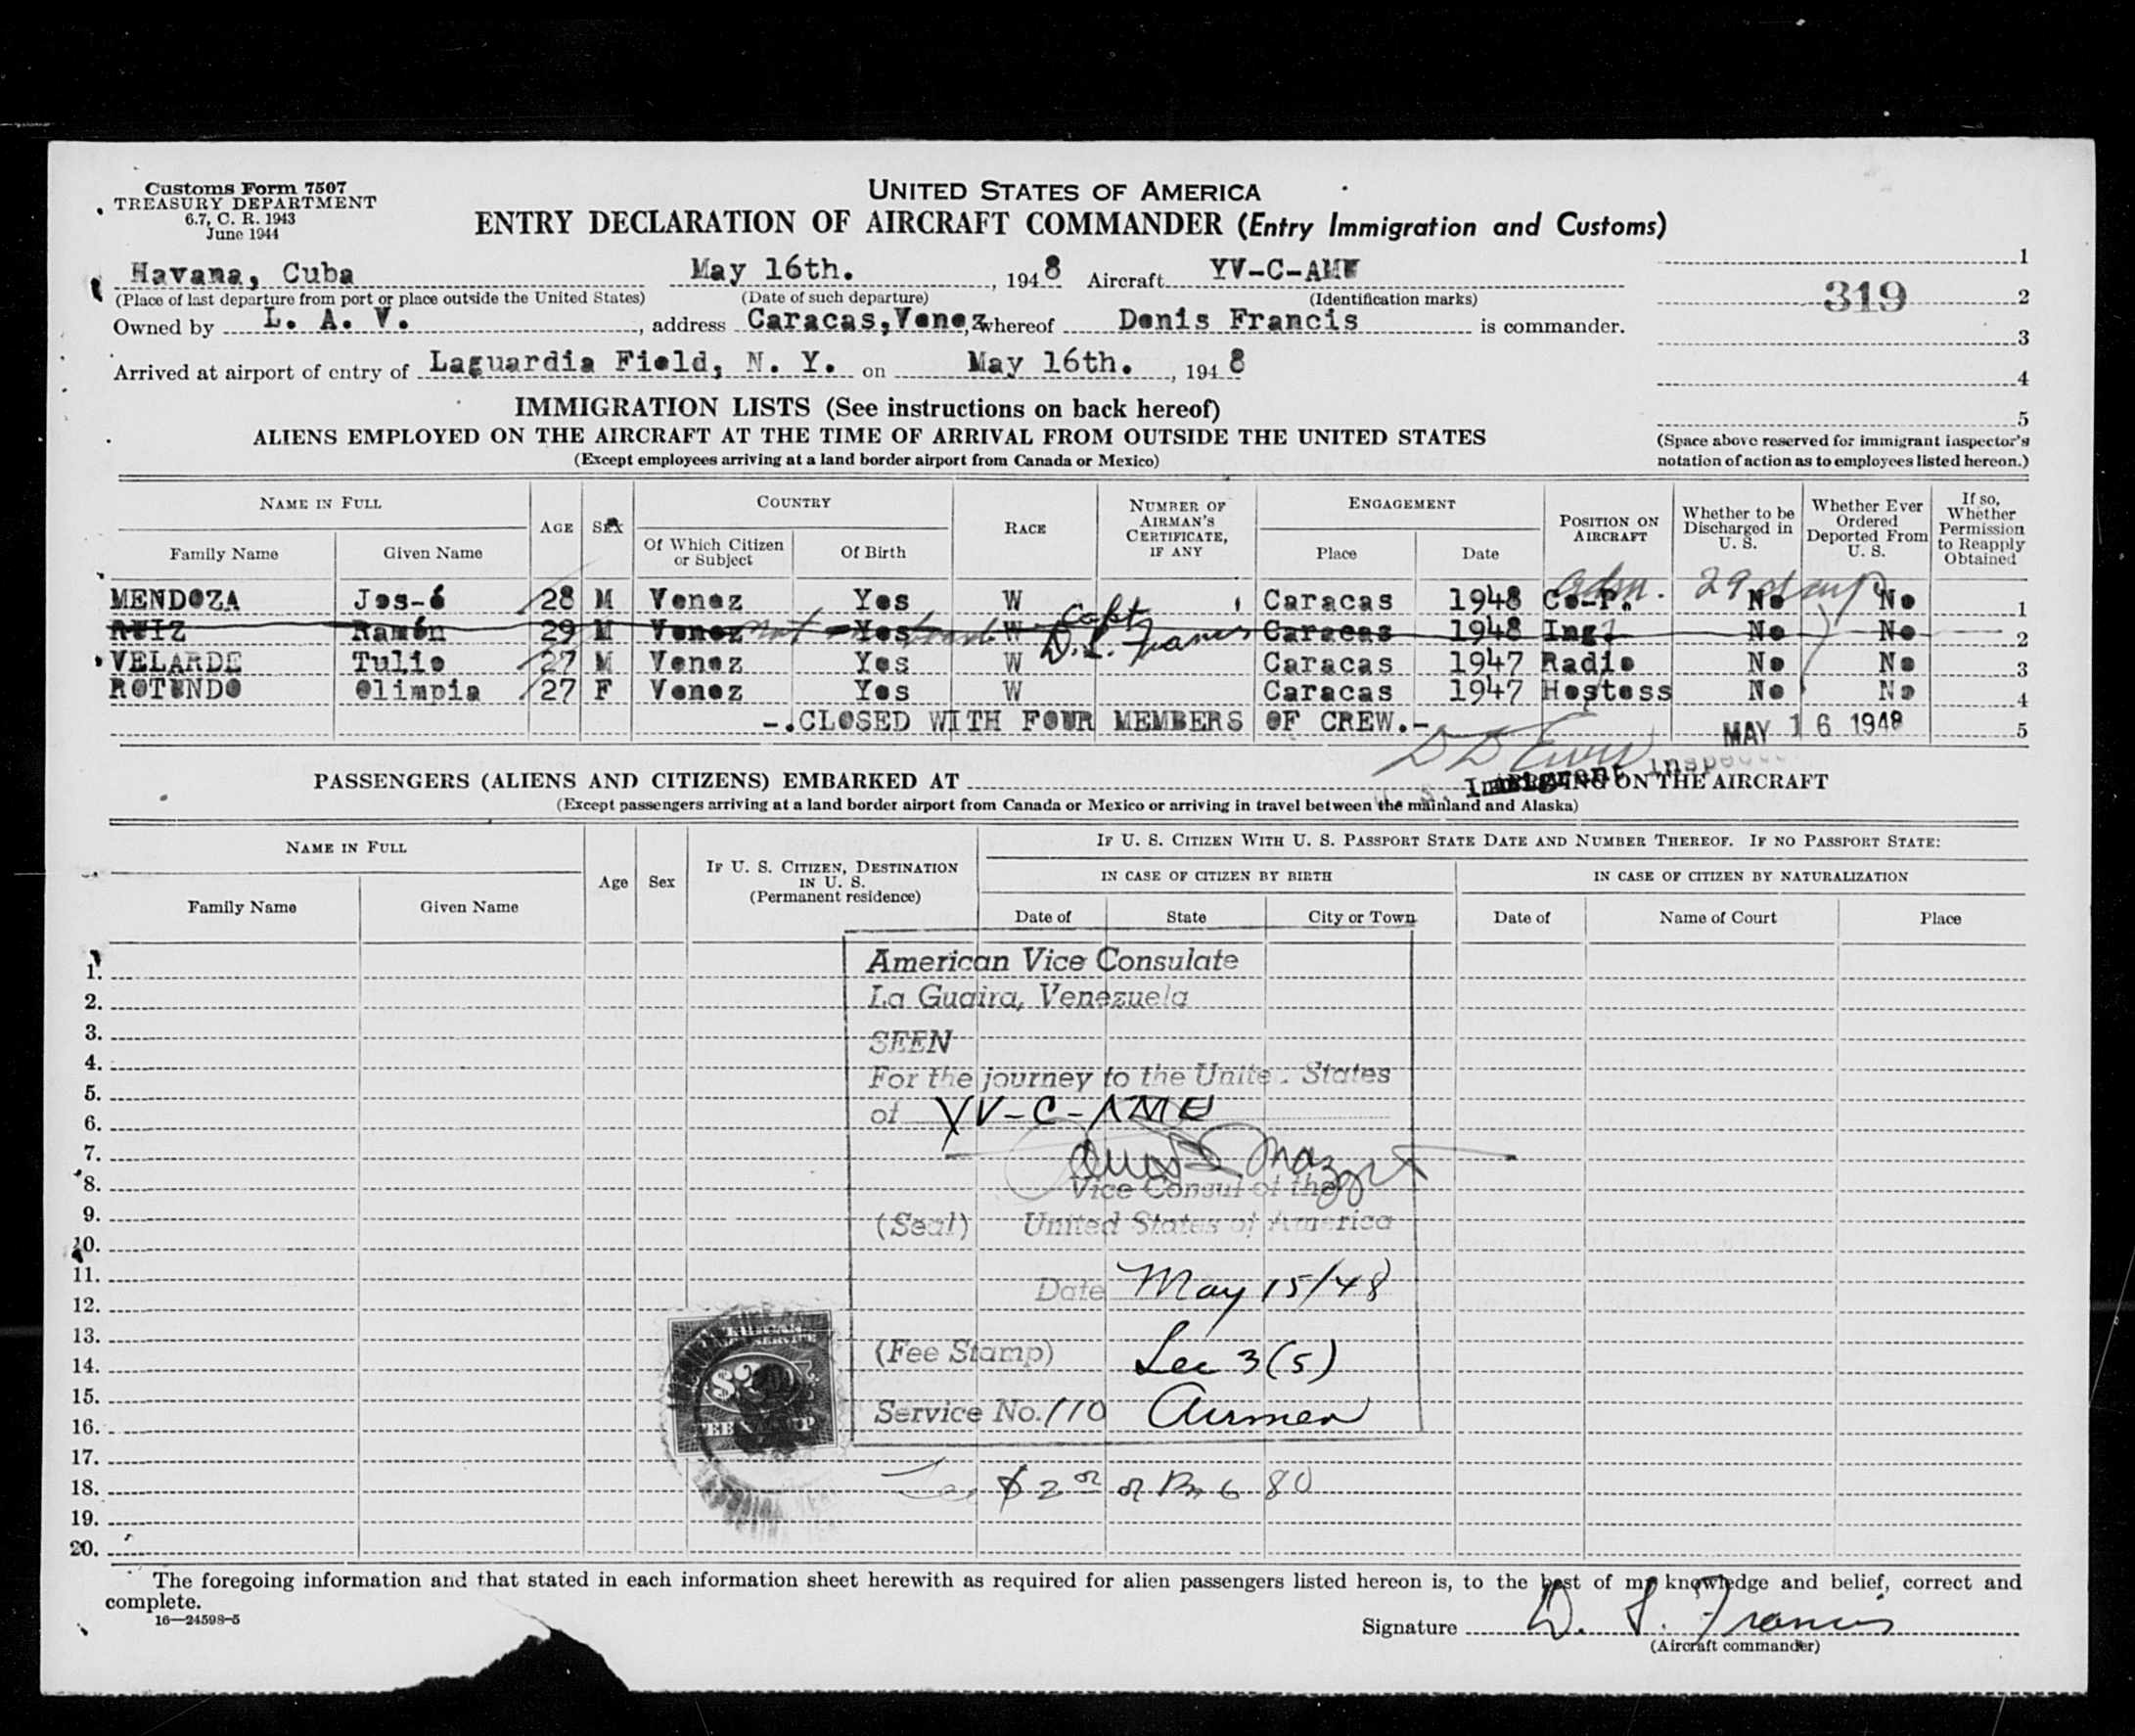 Customs Form 7507
TREASURY DEPARTMENT
6.7, C. R. 1943
June 1944
UNITED STATES OF AMERICA
ENTRY DECLARATION OF AIRCRAFT COMMANDER (Entry Immigration and Customs)
Havana, Cuba May 16th. , 1948 Aircraft YV-C-AME 1
(Place of last departure from port or place outside the United States) (Date of such departure) (Identification marks) 319 2
Owned by L. A. V. , address Caracas, Venez, whereof Denis Francis is commander.
3
Arrived at airport of entry of Laguardia Field, N. Y. on May 16th. , 1948
4
IMMIGRATION LISTS (See instructions on back hereof)
5
ALIENS EMPLOYED ON THE AIRCRAFT AT THE TIME OF ARRIVAL FROM OUTSIDE THE UNITED STATES
(Except employees arriving at a land border airport from Canada or Mexico)
(Space above reserved for immigrant inspector's
notation of action as to employees listed hereon.)
NAME IN FULL AGE SEX COUNTRY RACE NUMBER OF AIRMAN'S CERTIFICATE, IF ANY ENGAGEMENT POSITION ON AIRCRAFT Whether to be Discharged in U. S. Whether Ever Ordered Deported From U. S. If so, Whether Permission to Reapply Obtained
Family Name Given Name Of Which Citizen or Subject Of Birth Place Date
Adm. 29 days
MENDOZA Jos-é 28 M Venez Yes W Caracas 1948 Co-P. No No 1
RUIZ Ramón 29 M Venez Yes W Caracas 1948 Ing. No No 2
not on board Capt D. L. Francis
VELARDE Tulio 27 M Venez Yes W Caracas 1947 Radio No No 3
ROTUNDO Olimpia 27 F Venez Yes W Caracas 1947 Hostess No No 4
-.CLOSED WITH FOUR MEMBERS OF CREW.- MAY 16 1948 5
Immigrant Inspector
PASSENGERS (ALIENS AND CITIZENS) EMBARKED AT ON THE AIRCRAFT
(Except passengers arriving at a land border airport from Canada or Mexico or arriving in travel between the mainland and Alaska)
NAME IN FULL Age Sex IF U. S. CITIZEN, DESTINATION IN U. S. (Permanent residence) IF U. S. CITIZEN WITH U. S. PASSPORT STATE DATE AND NUMBER THEREOF. IF NO PASSPORT STATE:
IN CASE OF CITIZEN BY BIRTH IN CASE OF CITIZEN BY NATURALIZATION
Family Name Given Name Date of State City or Town Date of Name of Court Place
American Vice Consulate
1.
La Guaira, Venezuela
2.
3.
SEEN
4.
For the journey to the United States
5.
of YV-C-AME
6.
7.
8.
Vice Consul of the
9.
(Seal) United States of America
10.
11.
Date May 15/48
12.
13.
14.
(Fee Stamp) Sec 3(5)
15.
Service No. 110 Airmen
16.
$2
FEE STAMP
17.
18.
$2 80
19.
20.
The foregoing information and that stated in each information sheet herewith as required for alien passengers listed hereon is, to the best of my knowledge and belief, correct and
complete.
16—24598-5
Signature D. L. Francis
(Aircraft commander)